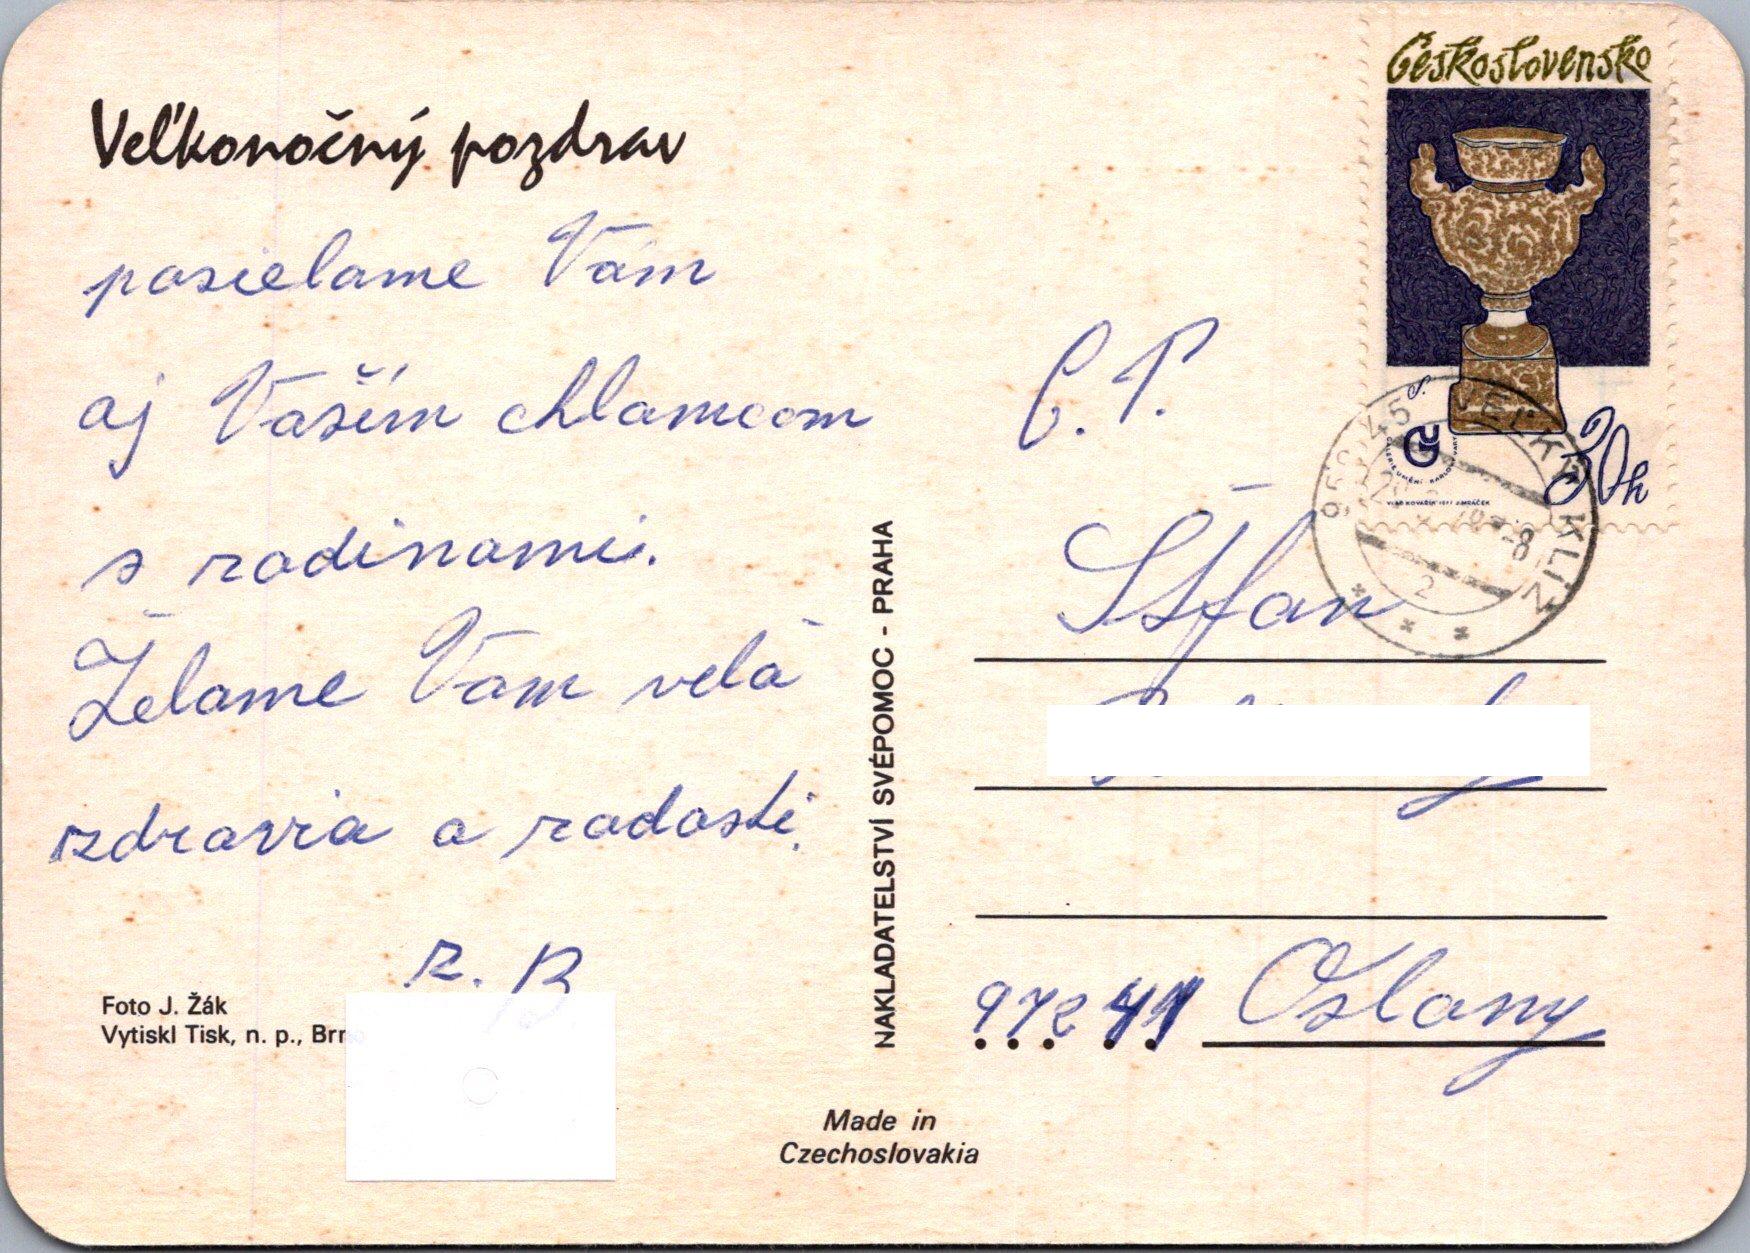 Veľkonočný pozdrav
posielame Vám
aj Vaším chlamcom
s rodinami.
Želame Vám velá
zdravia a radosti.
r. B
Foto J. Žák
Vytiskl Tisk, n. p., Brno
NAKLADATELSTVÍ SVÉPOMOC - PRAHA
Made in
Czechoslovakia
Československo
30h
VEĽKÝ KLÍŽ
C. P.
Štfan
972 41 Oslany